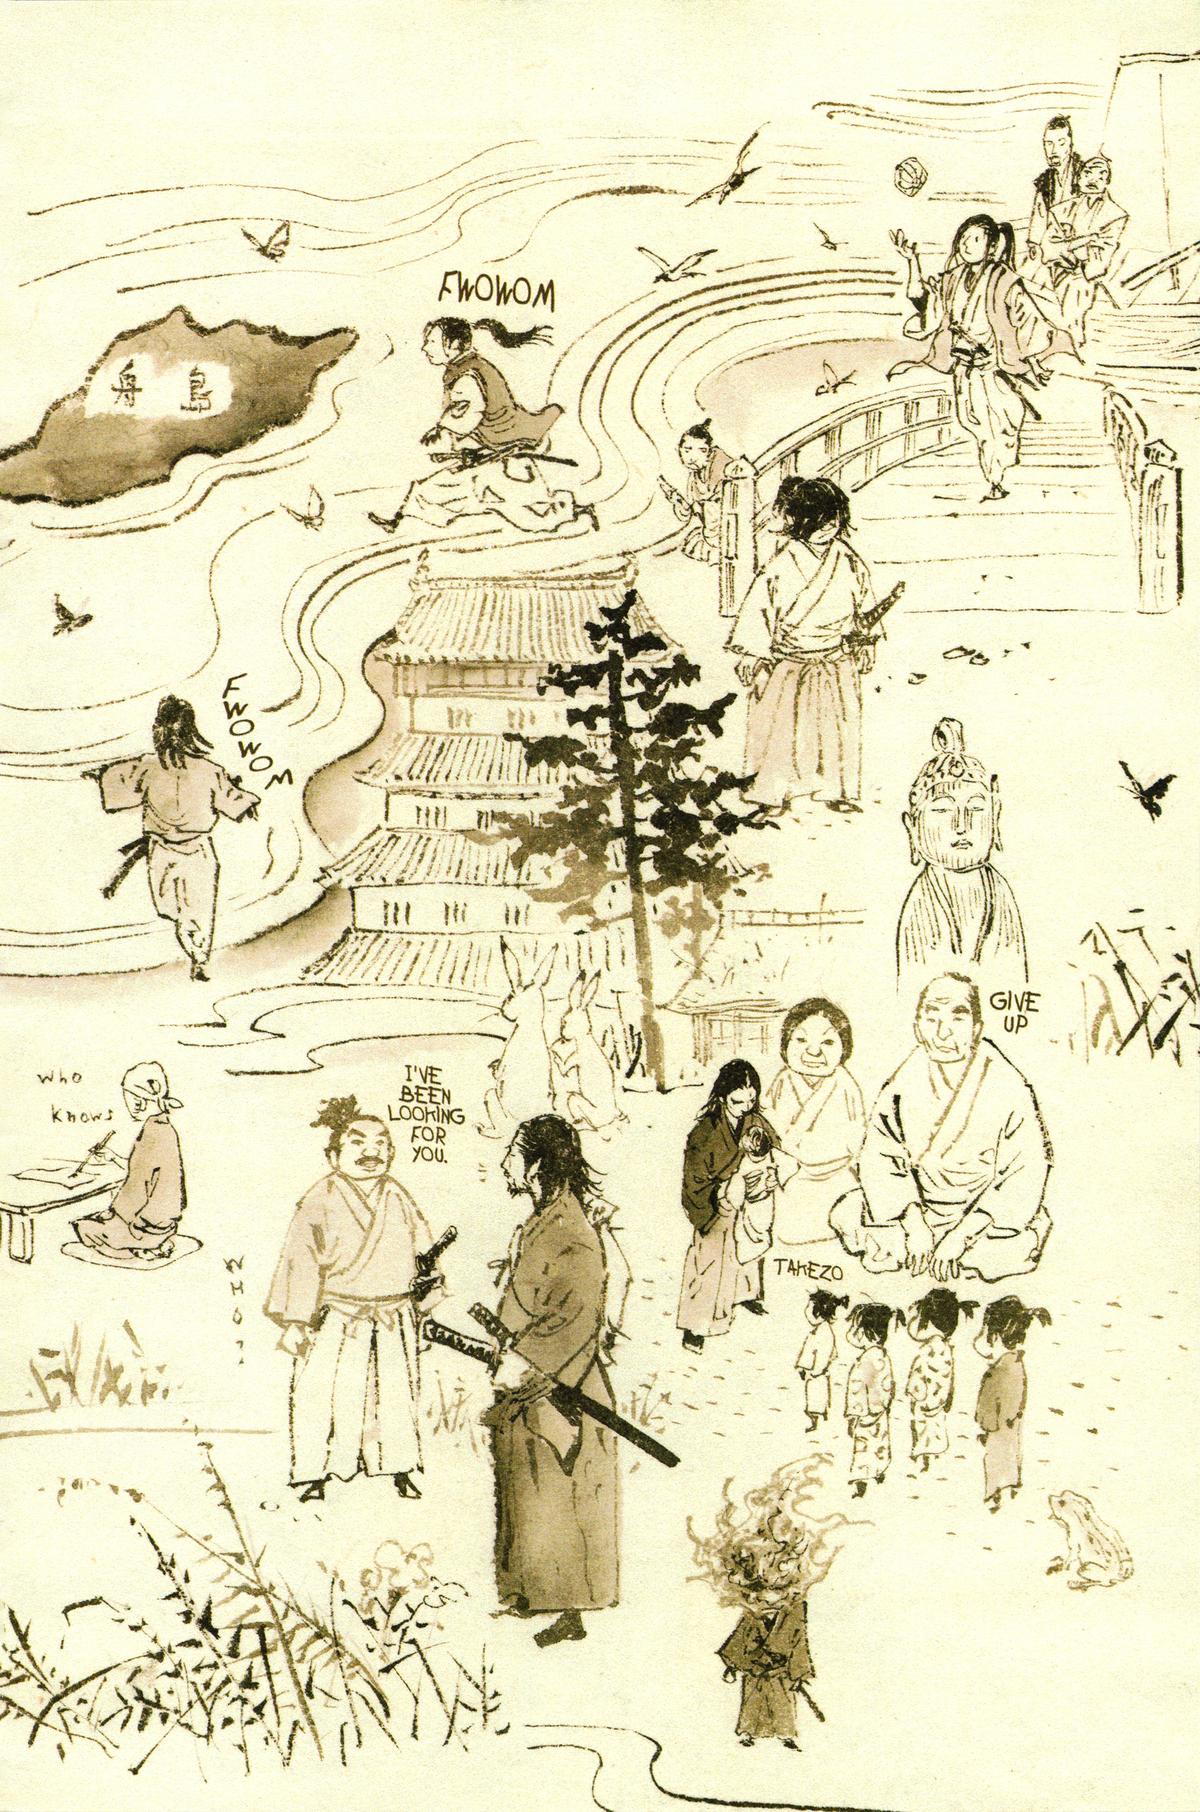 FWOWOM
舟島
FWOWOM
GIVE
UP
who
knows
I'VE
BEEN
LOOKING
FOR
YOU.
WHO?
TAKEZO